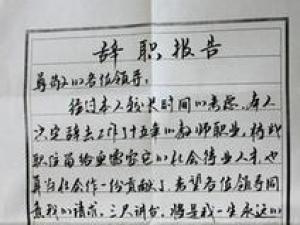 辞职报告
尊敬的各位领导:
经过本人较长时间的考虑,本人
决定辞去工作了十五年的教师职业,将此
职位留给更需要它的社会待业人才,也
算为社会作一份贡献了,希望各位领导同
意我的请求,三尺讲台,将是我一生永远的